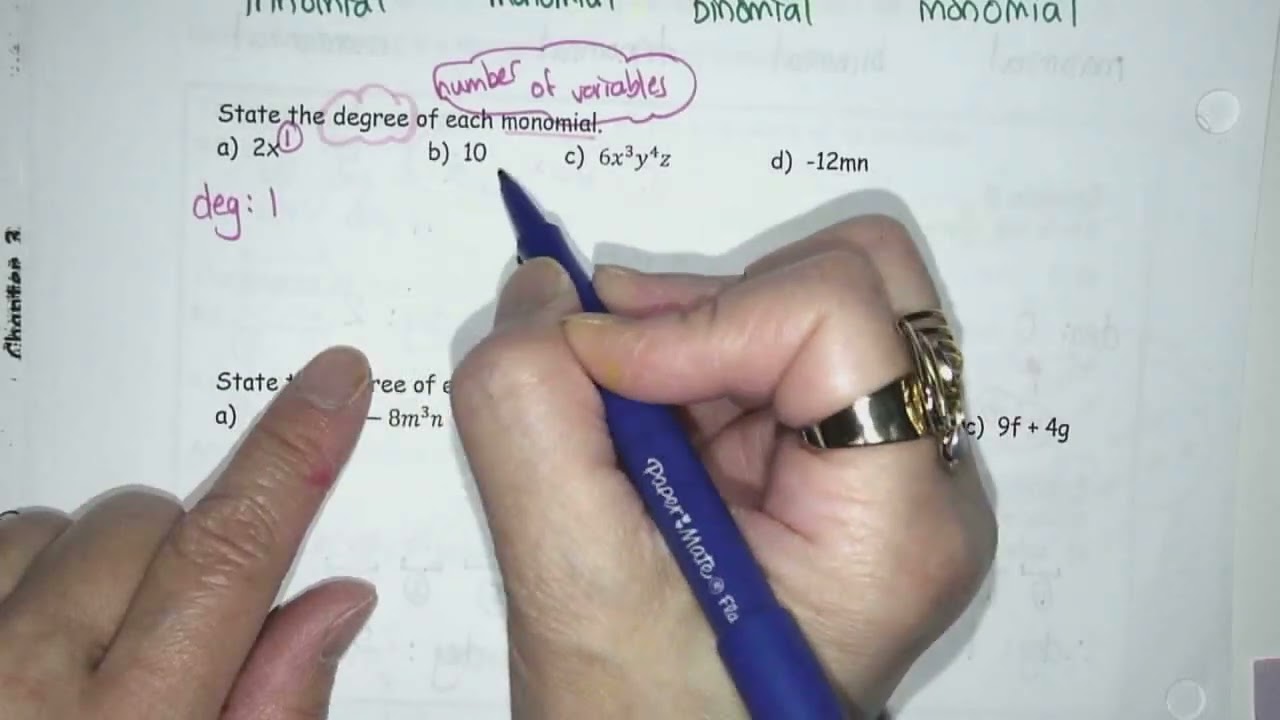 trinomial monomial binomial monomial
number of variables
State the degree of each monomial.
a) 2x¹ b) 10 c) 6x³y⁴z d) -12mn
deg: 1
Chapter
State ree of e
a) – 8m³n c) 9f + 4g
Paper Mate® Fla